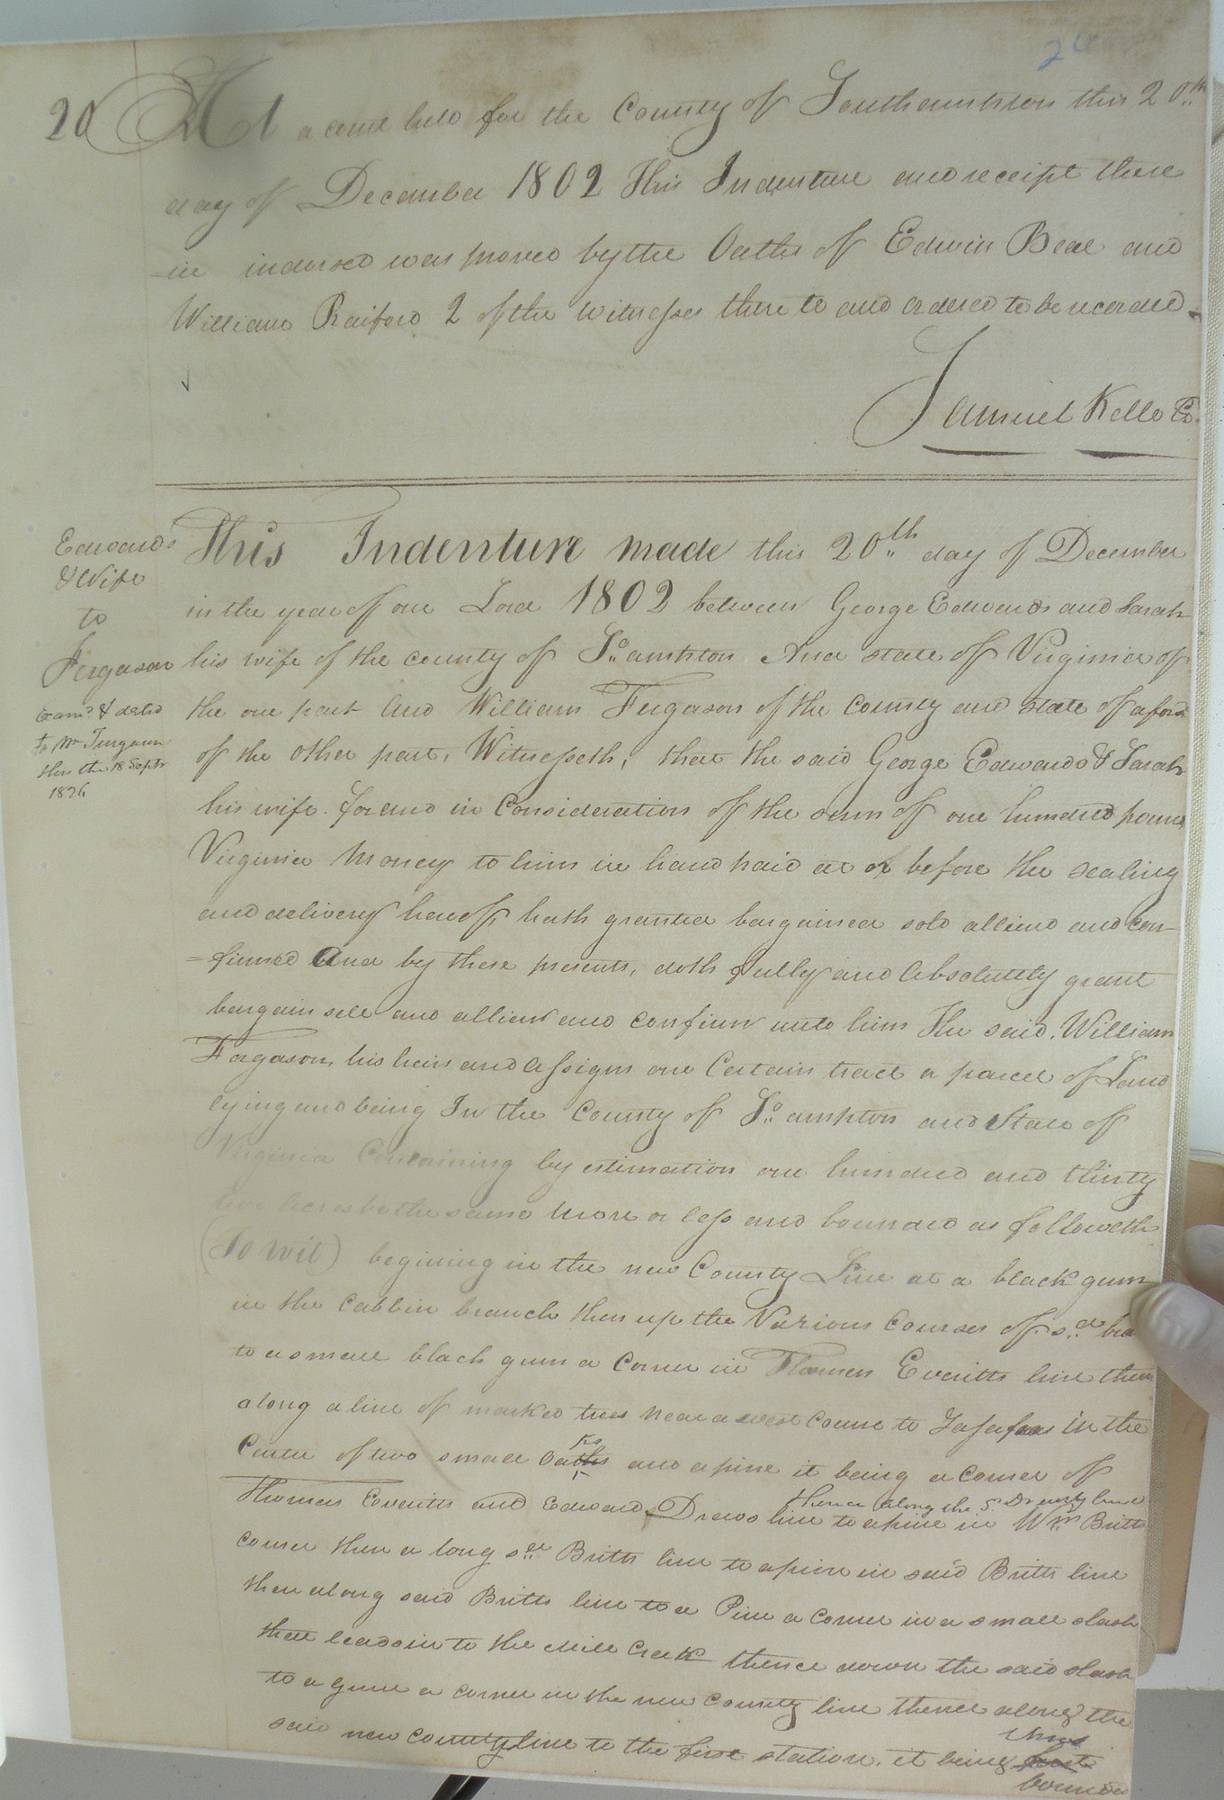 20
24
At a court held for the County of Southampton this 20th
day of December 1802 This Indenture and receipt there
-in indorsed was proved by the Oaths of Edwin Beal and
William Raiford 2 of the Witnesses there to and ordered to be recorded.
Samuel Kello Cl.
Edwards
& Wife
to
Fergason
Exam.d & deld
to Mr Furgason
this the 18 Septr
1826
This Indenture made this 20th day of December
in the year of our Lord 1802 between George Edwards and Sarah
his wife of the county of So.ampton And state of Virginia of
the one part And William Fergason of the County and State aford
of the other part, Witnesseth, that the said George Edwards & Sarah
his wife for and in Consideration of the sum of one hundred pound
Virginia Money to him in hand paid at or before the sealing
and delivery hereof hath granted bargained sold alliend and con-
=firmed And by these presents, doth fully and Absolutely grant
bargain sell and allien and confirm unto him the said William
Fergason, his heirs and assigns one Certain tract or parcel of Land
lying and being In the County of So.ampton and State of
Virginia Containing by estimation one hundred and thirty
two Acres be the same More or less and bounded as followeth
(To wit) begining in the new County Line at a black gum
in the Cabbin branch then up the Various Courses of sd bra
to a small black gum a Corner in Thomas Everitts line then
along a line of marked trees near a west Course to in the
Center of two small Oaks and a pine it being a Corner of
Thomas Everitts and Edward Drews line to a pine in Wm Britts
thence along the sd Drewry line
corner then along sd Britts line to a pine in said Britts line
then along said Britts line to a Pine a Corner in a small slash
that leads in to the Mill Creek thence down the said slash
to a gum a corner in the new County line thence along the
said new County line to the first station, it being
thus
bounded